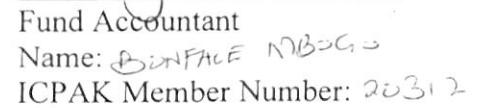 Fund Accountant
Name: BONFACE MBOGO
ICPAK Member Number: 20312